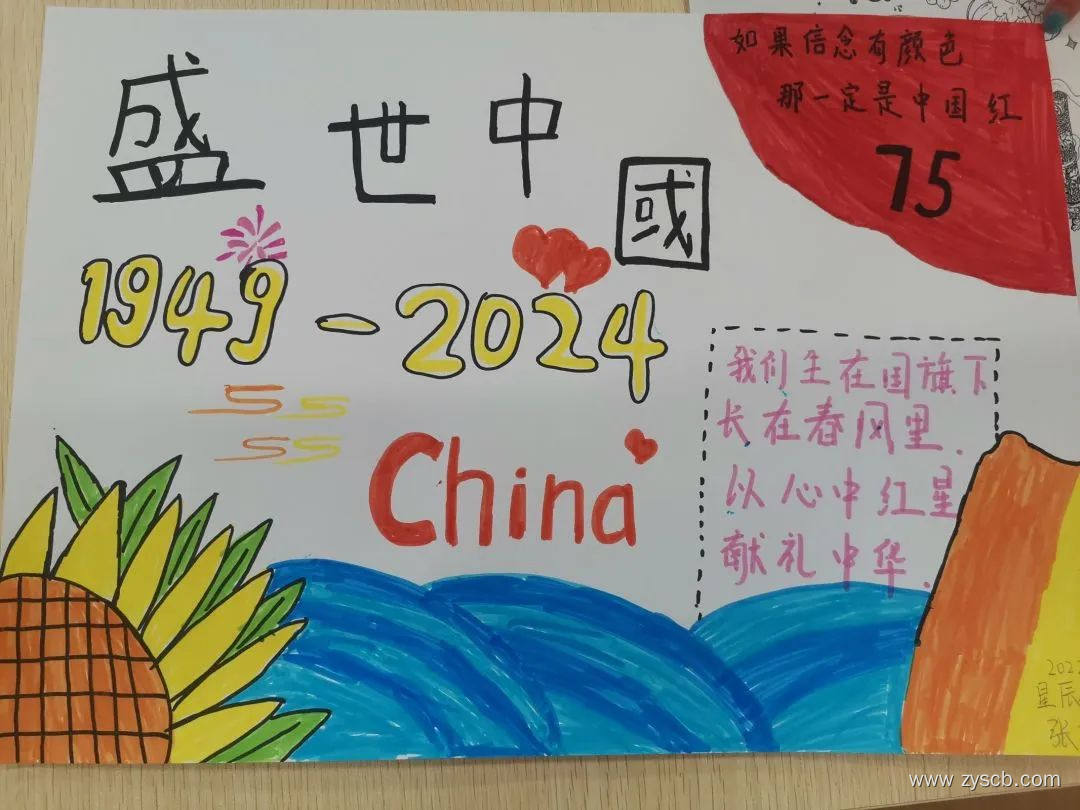 盛世中國
如果信念有颜色
那一定是中国红
75
1949-2024
China
我们生在国旗下
长在春风里.
以心中红星
献礼中华.
202
星辰
张
www.zyscb.com